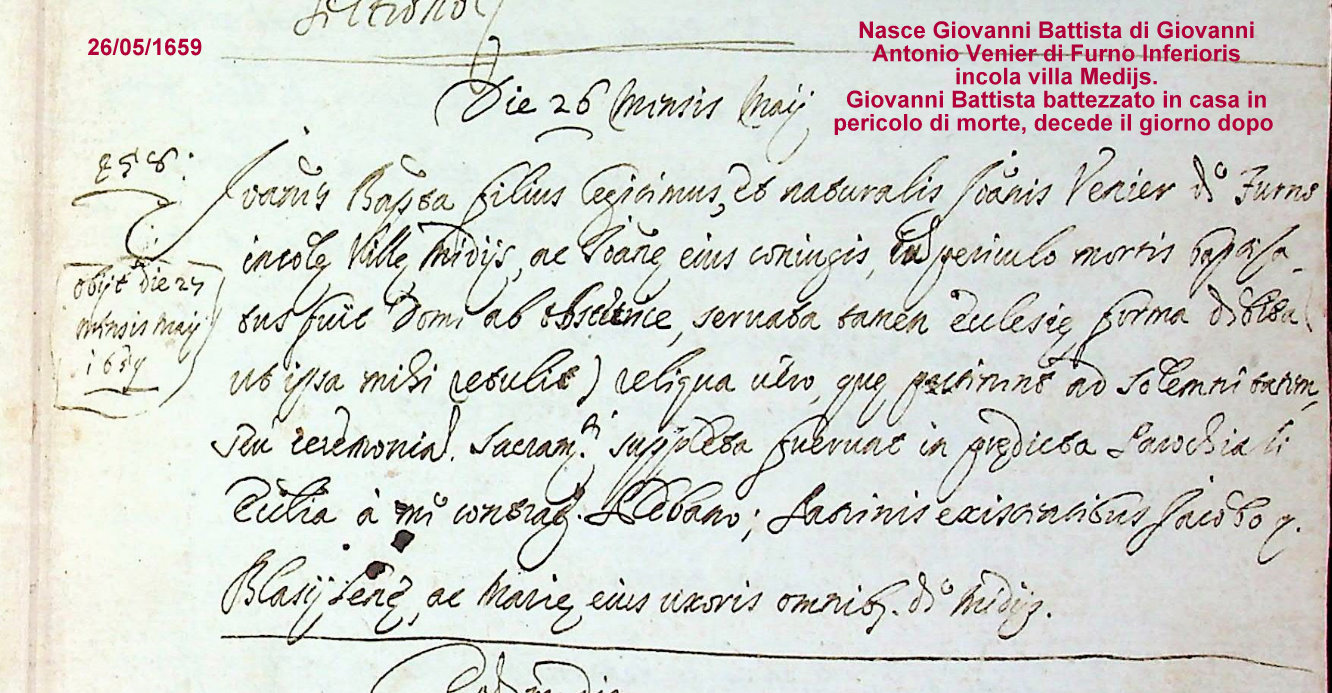 26/05/1659
Nasce Giovanni Battista di Giovanni
Antonio Venier di Furno Inferioris
incola villa Medijs.
Giovanni Battista battezzato in casa in
pericolo di morte, decede il giorno dopo
Die 26 Mensis Maij
258:
Joanes Bapsta filius legitimus, et naturalis Joanis Venier de Furno
incole Ville Medijs, ac Joane eius coniugis, in periculo mortis baptiza-
obijt die 27
tus fuit Domi ab obstetrice, servata tamen Eclesie forma debita
mensis Maij
1659
ut ipsa mihi retulit) reliqua vero, que pertinent ad solemnitatem,
seu ceremonia. Sacram.ti suppleta fuerunt in predicta Parochiali
Eclia à me Plebano; Patrinis existentibus Jacobo q.
Blasij ac Marie eius uxoris omnib. de Medijs.